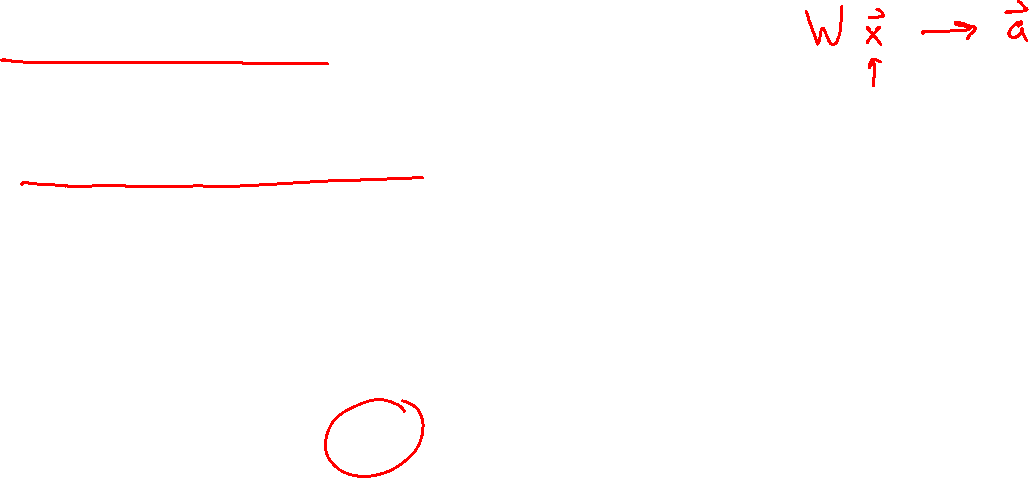 W x⃗ → a⃗
↑